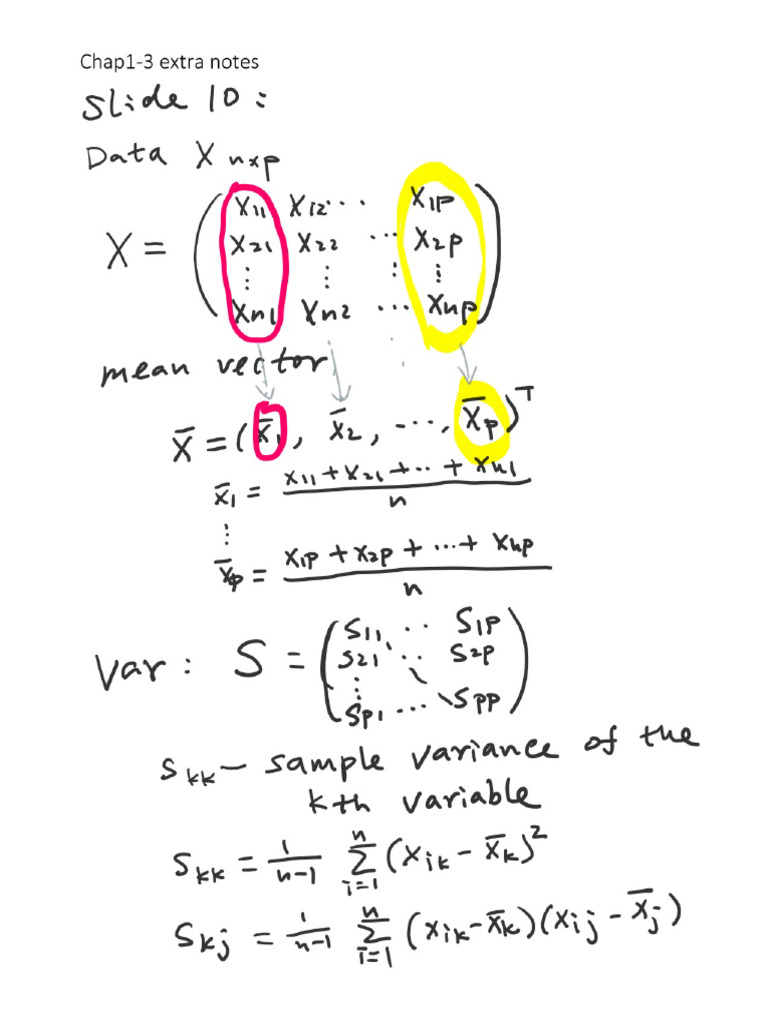 Chap1-3 extra notes
Slide 10:
Data X nxp
X = ( X11 X12 ··· X1P
X21 X22 ··· X2P
⋮ ⋮ ⋮ ⋮
Xn1 Xn2 ··· Xnp )
mean vector
X̄ = ( x̄1, x̄2, ···, x̄p )ᵀ
x̄1 = (x11 + x21 + ·· + xn1) / n
⋮
x̄p = (x1p + x2p + ··· + xnp) / n
Var: S = ( S11 ·· S1P
S21 ·· S2P
⋮
SP1 ··· SPP )
S kk – sample variance of the
kth variable
S kk = 1/(n-1) Σ_{i=1}^{n} (x ik - x̄k)²
S kj = 1/(n-1) Σ_{i=1}^{n} (x ik - x̄k)(x ij - x̄j)